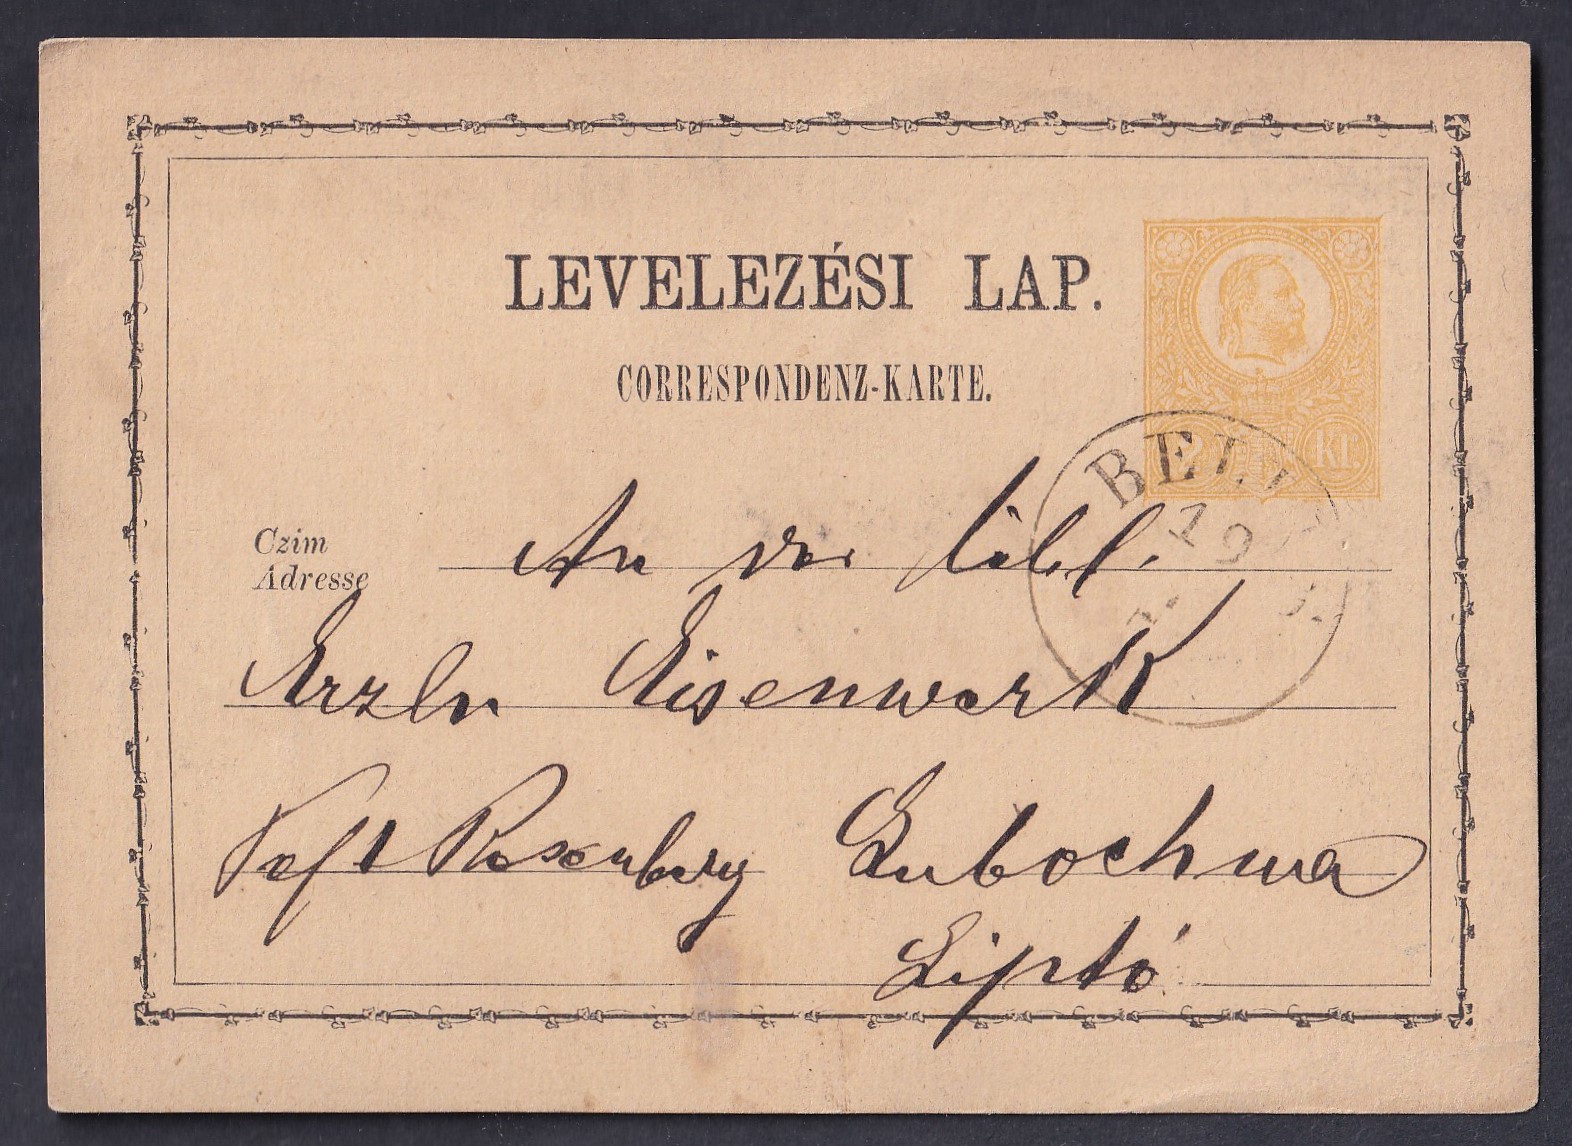 LEVELEZÉSI LAP.
CORRESPONDENZ-KARTE.
2 Kr.
BEL
19
Czim
Adresse
An die löbl.
Erzhr. Eisenwerk
Post Rosenberg Lubochna
Liptó